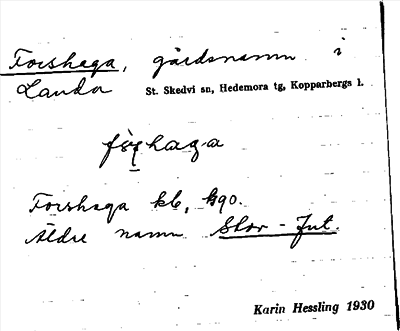 Forshaga, gårdsnamn i
Landa St. Skedvi sn, Hedemora tg, Kopparbergs l.
Forshaga kb,
Äldre namn Skor-Jut.
Karin Hessling 1930